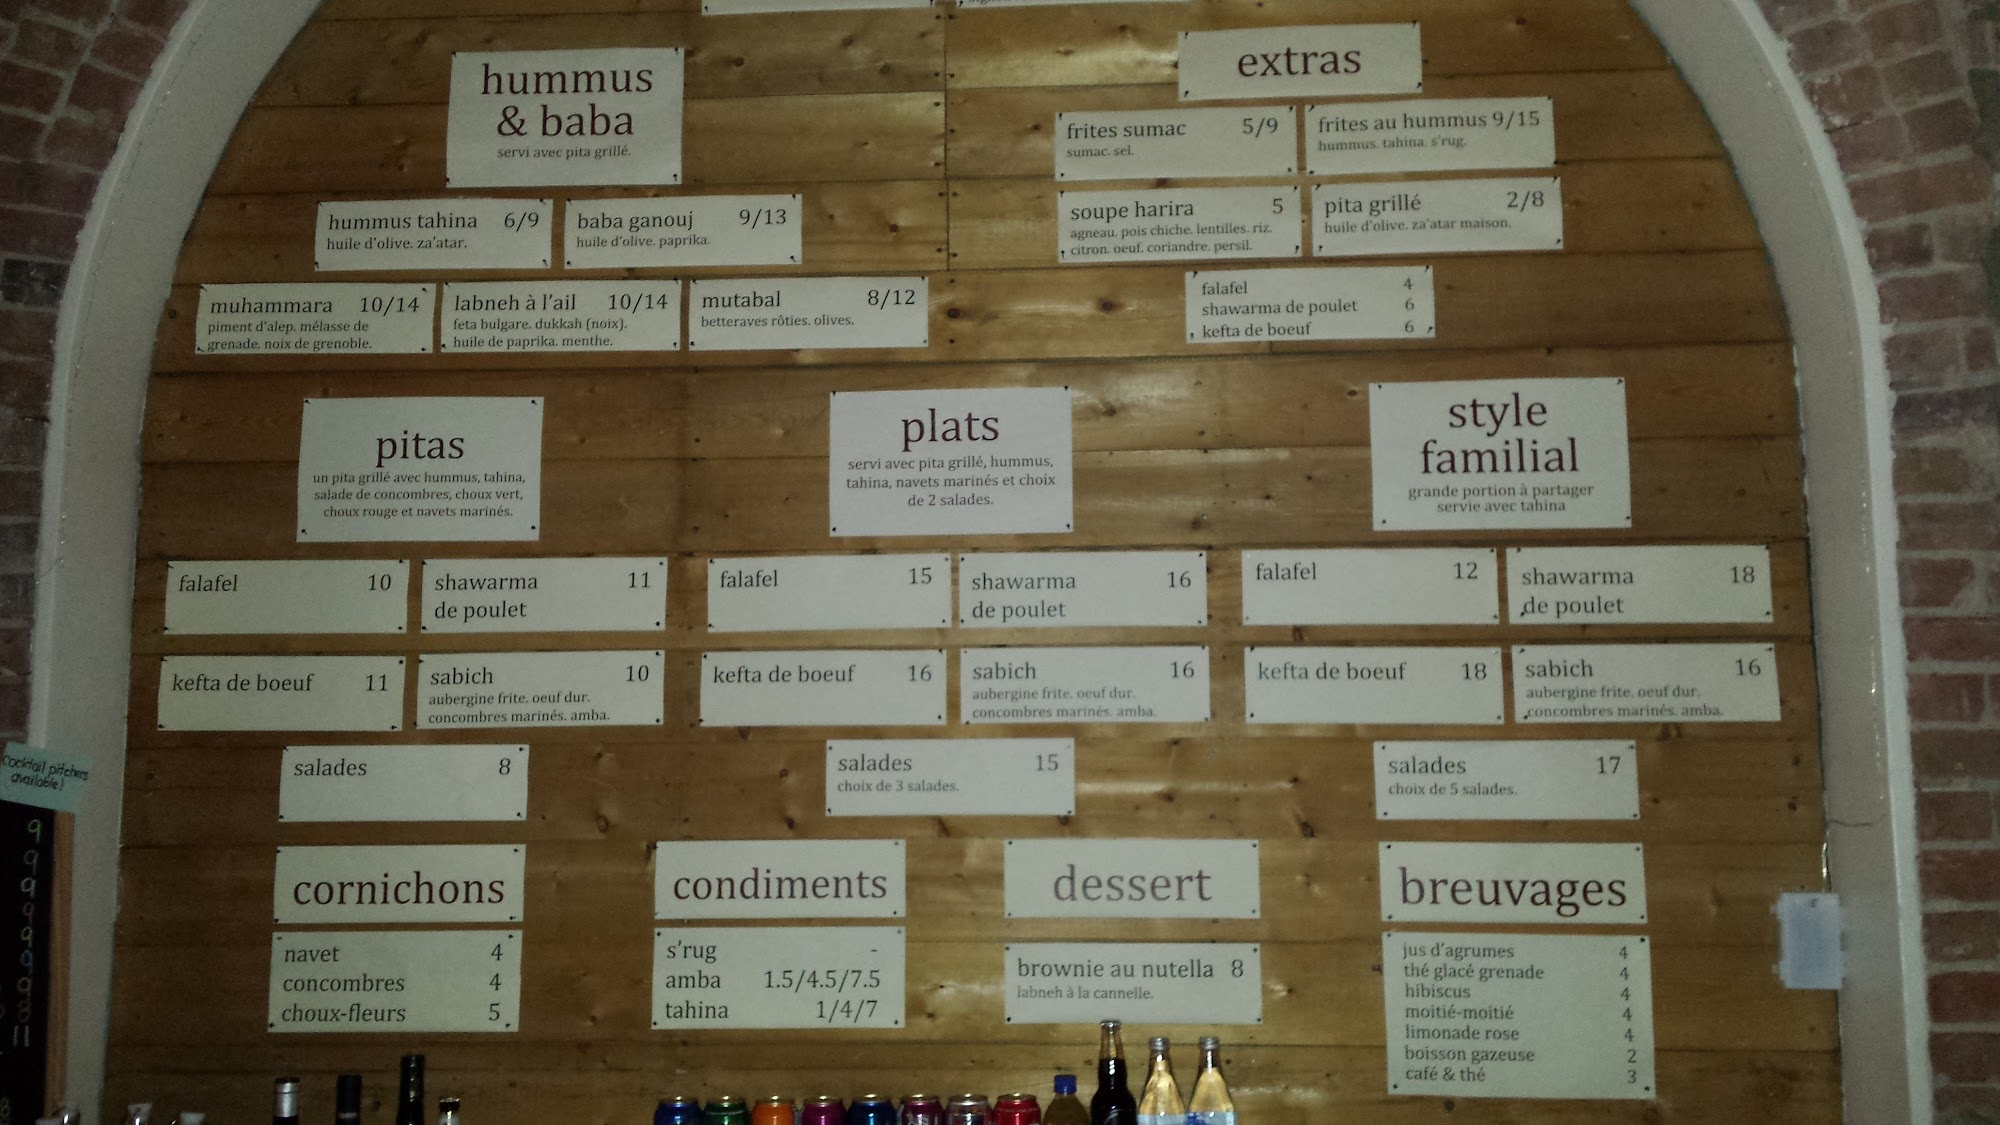 hummus
& baba
servi avec pita grillé.
hummus tahina 6/9
huile d'olive. za'atar.
baba ganouj 9/13
huile d'olive. paprika.
muhammara 10/14
piment d'alep. mélasse de
grenade. noix de grenoble.
labneh à l'ail 10/14
feta bulgare. dukkah (noix).
huile de paprika. menthe.
mutabal 8/12
betteraves rôties. olives.
extras
frites sumac 5/9
sumac. sel.
frites au hummus 9/15
hummus. tahina. s'rug.
soupe harira 5
agneau. pois chiche. lentilles. riz.
citron. oeuf. coriandre. persil.
pita grillé 2/8
huile d'olive. za'atar maison.
falafel 4
shawarma de poulet 6
kefta de boeuf 6
pitas
un pita grillé avec hummus, tahina,
salade de concombres, choux vert,
choux rouge et navets marinés.
falafel 10
shawarma 11
de poulet
kefta de boeuf 11
sabich 10
aubergine frite. oeuf dur.
concombres marinés. amba.
salades 8
plats
servi avec pita grillé, hummus,
tahina, navets marinés et choix
de 2 salades.
falafel 15
shawarma 16
de poulet
kefta de boeuf 16
sabich 16
aubergine frite. oeuf dur.
concombres marinés. amba.
salades 15
choix de 3 salades.
style
familial
grande portion à partager
servie avec tahina
falafel 12
shawarma 18
de poulet
kefta de boeuf 18
sabich 16
aubergine frite. oeuf dur.
concombres marinés. amba.
salades 17
choix de 5 salades.
cocktail pitchers
available!
9
9
9
9
9
9
9
8
11
cornichons
navet 4
concombres 4
choux-fleurs 5
condiments
s'rug -
amba 1.5/4.5/7.5
tahina 1/4/7
dessert
brownie au nutella 8
labneh à la cannelle.
breuvages
jus d'agrumes 4
thé glacé grenade 4
hibiscus 4
moitié-moitié 4
limonade rose 4
boisson gazeuse 2
café & thé 3